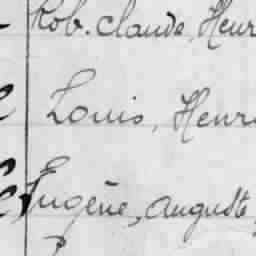 Rob. Claude, Henr
Louis, Henri
Eugène, Auguste,